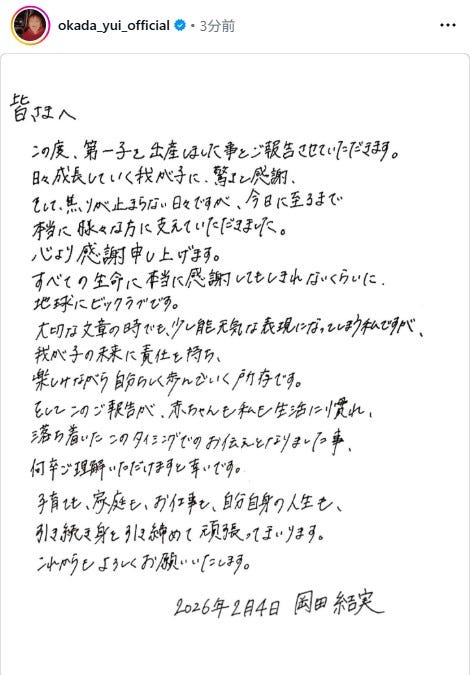 okada_yui_official • 3分前
皆さまへ
この度、第一子を出産しました事をご報告させていただきます。
日々成長していく我が子に、驚きと感謝、
そして、焦りが止まらない日々ですが、今日に至るまで
本当に様々な方に支えていただきました。
心より感謝申し上げます。
すべての生命に本当に感謝してもしきれないくらいに、
地球にビックラブです。
大切な文章の時でも、少し能元気な表現になってしまう私ですが、
我が子の未来に責任を持ち、
楽しみながら自分らしく歩んでいく所存です。
そしてこのご報告が、赤ちゃんも私も生活に慣れ、
落ち着いたこのタイミングでのお伝えとなりました事、
何卒ご理解いただけますと幸いです。
子育ても、家庭も、お仕事も、自分自身の人生も、
引き続き身を引き締めて頑張ってまいります。
これからもよろしくお願いいたします。
2026年2月4日 岡田結実